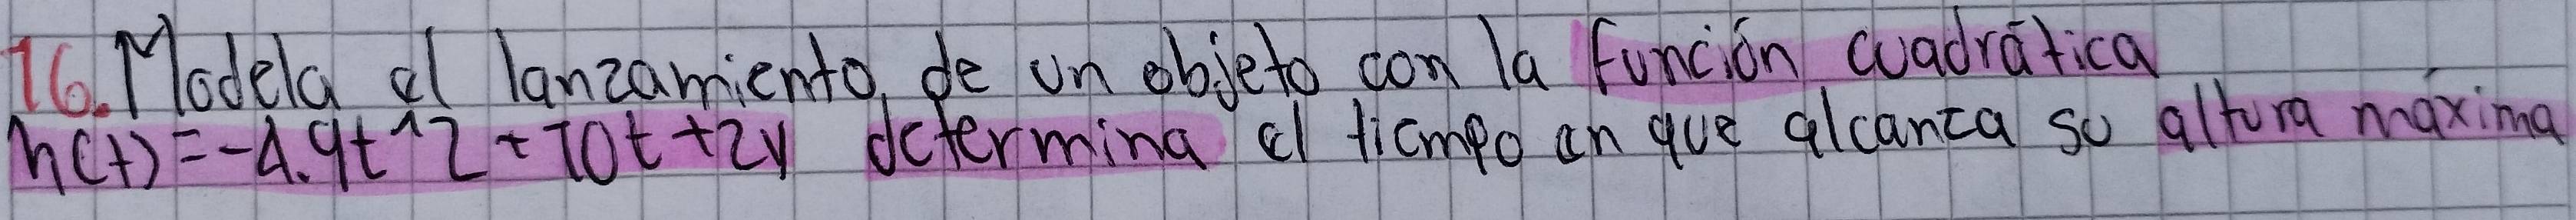 16. Modela el lanzamiento, de un objeto con la función cuadrática
h(t)=-4.9t^2+10t+2y determina el tiempo en que alcanza su altura máxima